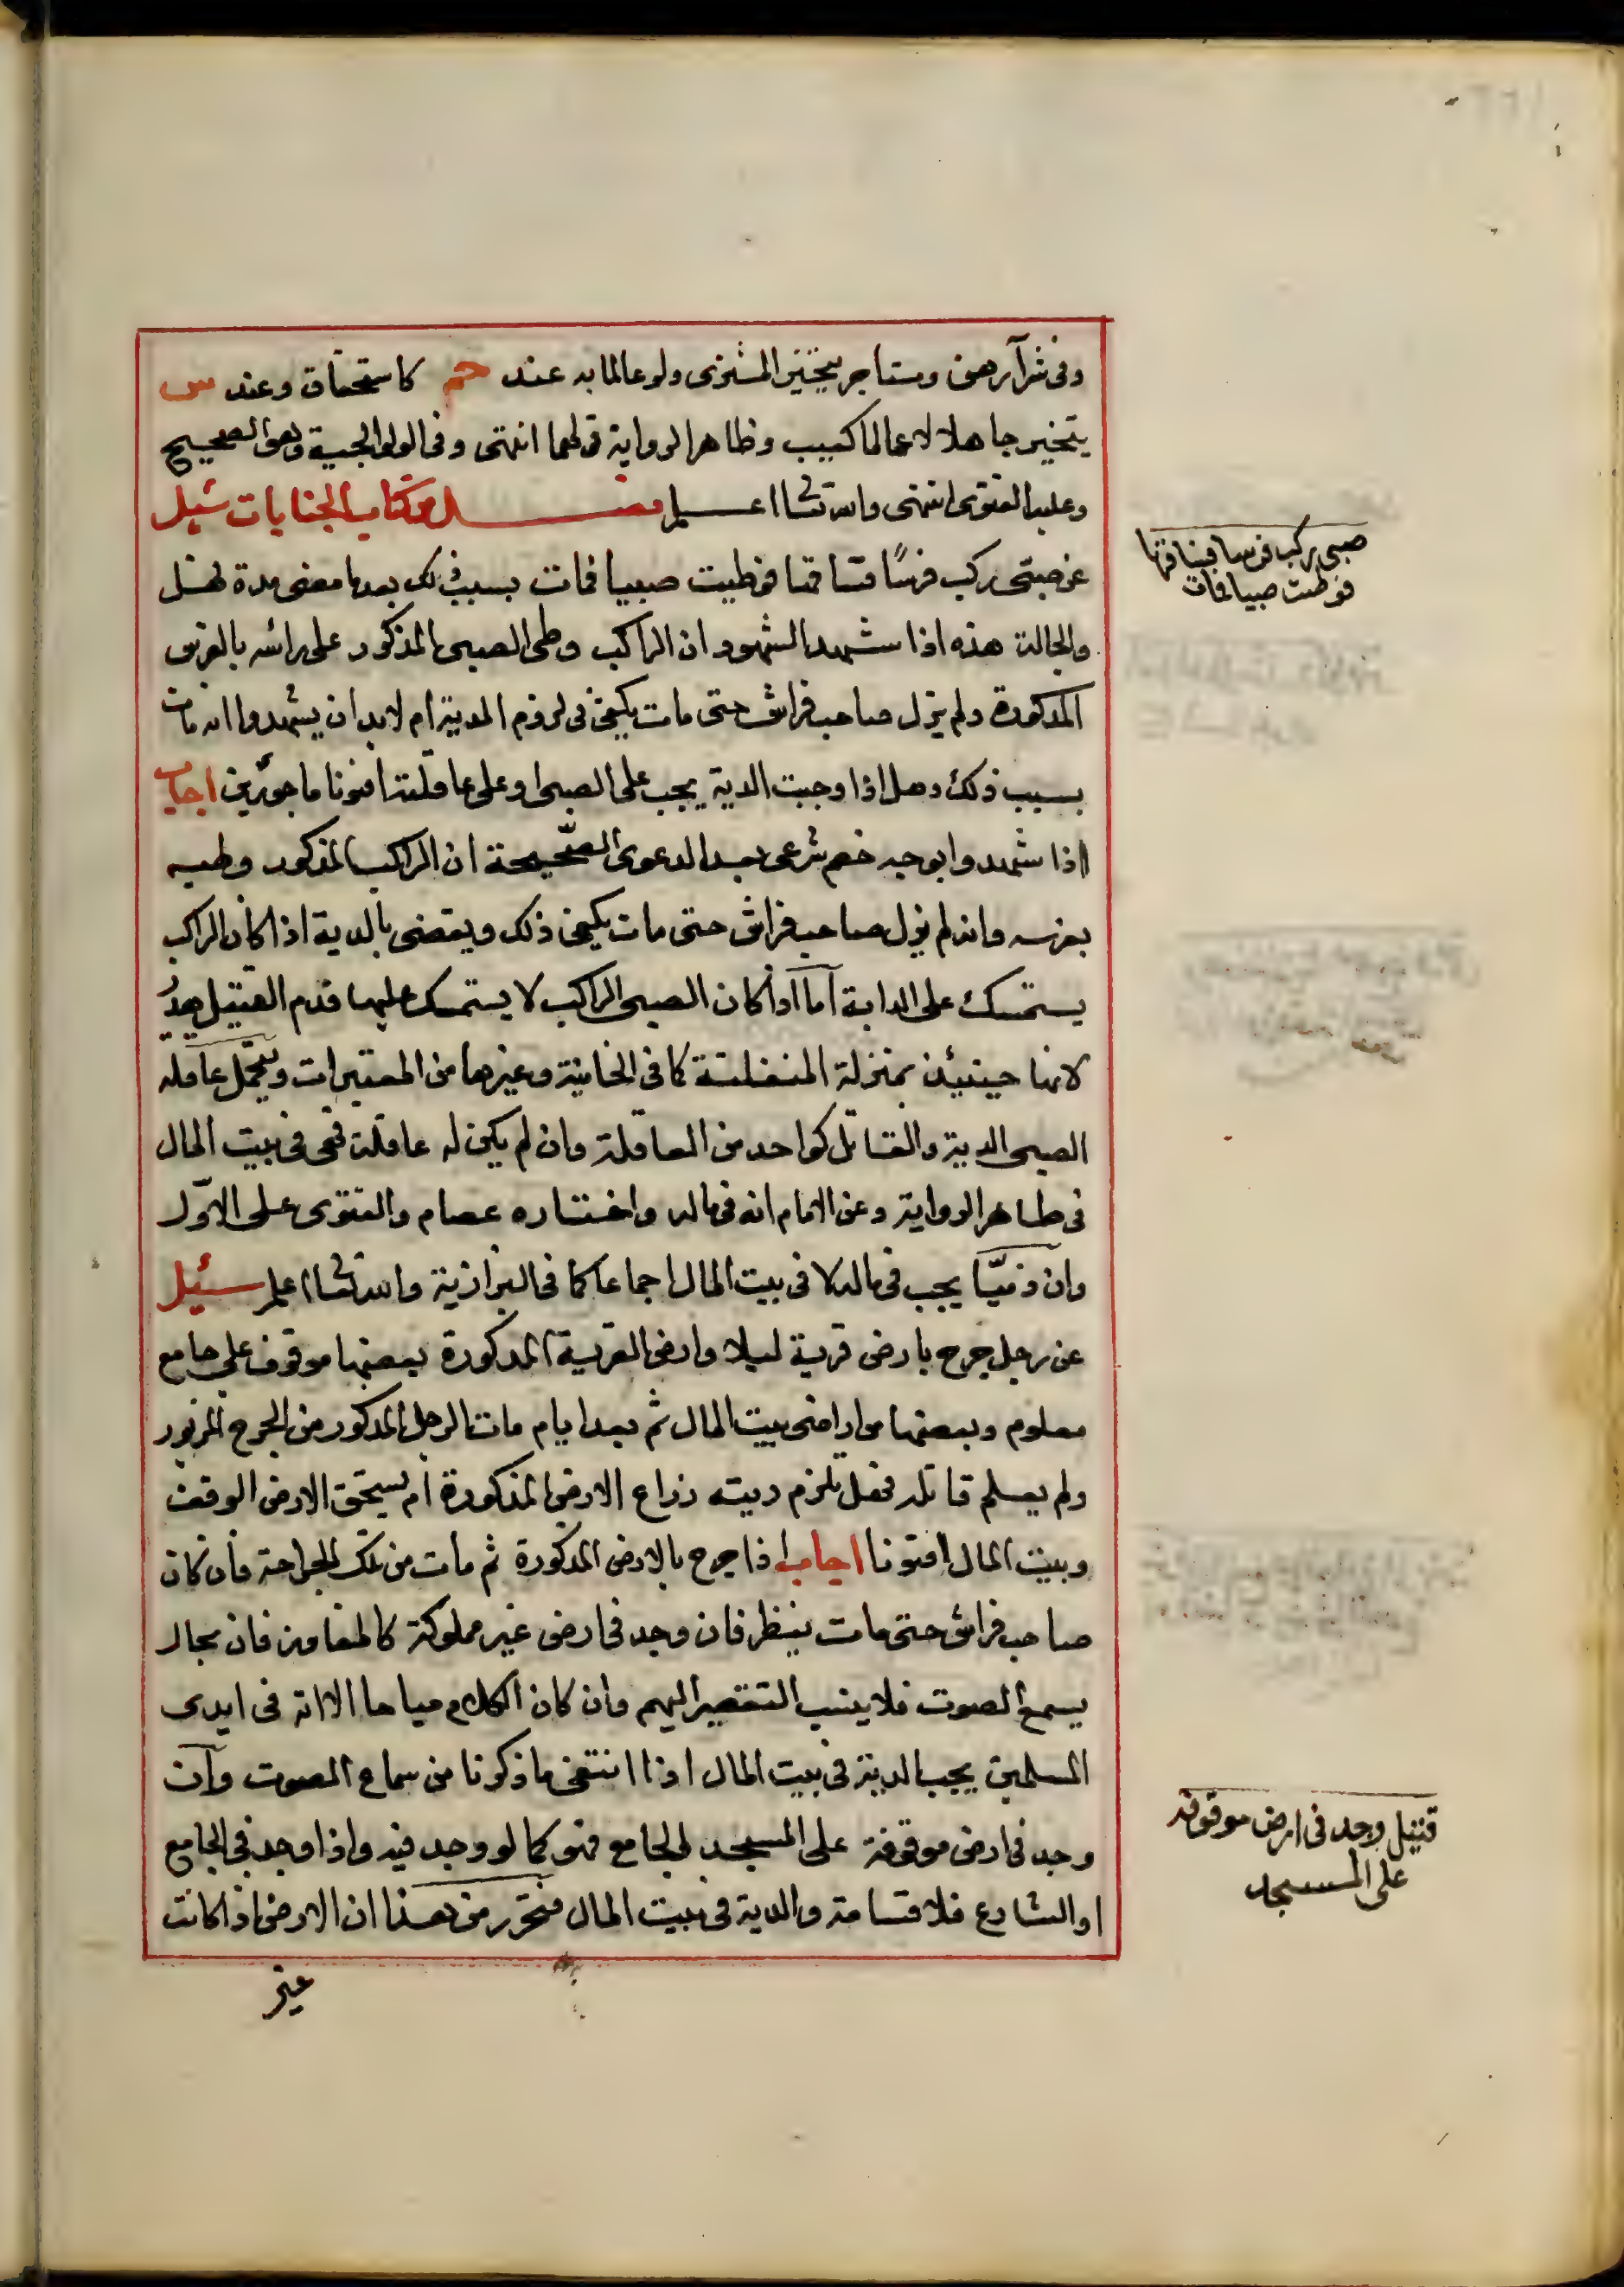 وفى شرآ رهن ومستاجر يتخير المشترى ولو عالما به عند حم كاستحقاق وعند س
يتخير جاهلا لا عالما كعيب وظاهر الرواية قولهما انتهى وفى الولوالجية وهو الصحيح
وعليه الفتوى انتهى والله تعالى اعلم من كتاب الجنايات سئيل
عن صبىّ ركب فرسًا فساقها فوطيت صبيا فمات بسبب ذلك بعد ما مضى مدة فهل
والحالة هذه اذا شهد الشهود ان الراكب وطى الصبى المذكور على رائسه بالفرس
المذكورة ولم يزل صاحب فراش حتى مات يكفى فى لزوم الدية ام لا بد ان يشهدوا انه مات
بسبب ذلك وهل اذا وجبت الدية يجب على الصبى او على عاقلته افتونا ماجورين اجاب
اذا شهدوا بوجه خصم شرعى بعد الدعوى الصّحيحة ان الراكب المذكور وطيه
بفرسه وانه لم يزل صاحب فراش حتى مات يكفى ذلك ويقضى بالدية اذا كان الراكب
يستمسك على الدابة آما اذا كان الصبى الراكب لا يستمسك عليها فدم القتيل هدرٌ
لانها حينئذ بمنزلة المنفلتة كما فى الخانية وغيرها من المعتبرات وتتحمل عاقلة
الصبى الدية والقاتل كواحد من العاقلة وان لم يكن له عاقلة فهى فى بيت المال
فى ظاهر الرواية وعن الامام انه فى ماله واختاره عصام والفتوى على الاوّل
وان ذميّا يجب فى ماله لا فى بيت المال اجماعا كما فى البزازية والله تعالى اعلم سئيل
عن رجل جرح بارض قرية ليلا وارض القرية المذكورة بعضها موقوف على جامع
معلوم وبعضها من اراضى بيت المال ثم بعد ايام مات الرجل المذكور من الجرح المزبور
ولم يعلم قاتله فهل تلزم ديته زراع الارض المذكورة ام مستحق الارض الوقف
وبيت المال افتونا اجاب اذا جرح بالارض المذكورة ثم مات من تلك الجراحة فان كان
صاحب فراش حتى مات ينظر فان وجد فى ارض غير مملوكة كالمفاوز فان بحال
يسمع الصوت فلا ينسب التقصير اليهم وان كان الكلام مباحا الا انه فى ايدى
المسلمين يجب الدية فى بيت المال اذا انتفى ما ذكرنا من سماع الصوت وآن
وجد فى ارض موقوفة على المسجد الجامع فهو كما لو وجد فيه واذا وجد فى الجامع
او الشارع فلا قسامة والدية فى بيت المال فتحرر من هذا ان الارض اذا كانت
غير
صبى ركب فرسا فساقها
فوطئت صبيا فمات
قتيل وجد فى ارض موقوفه
على المسجد